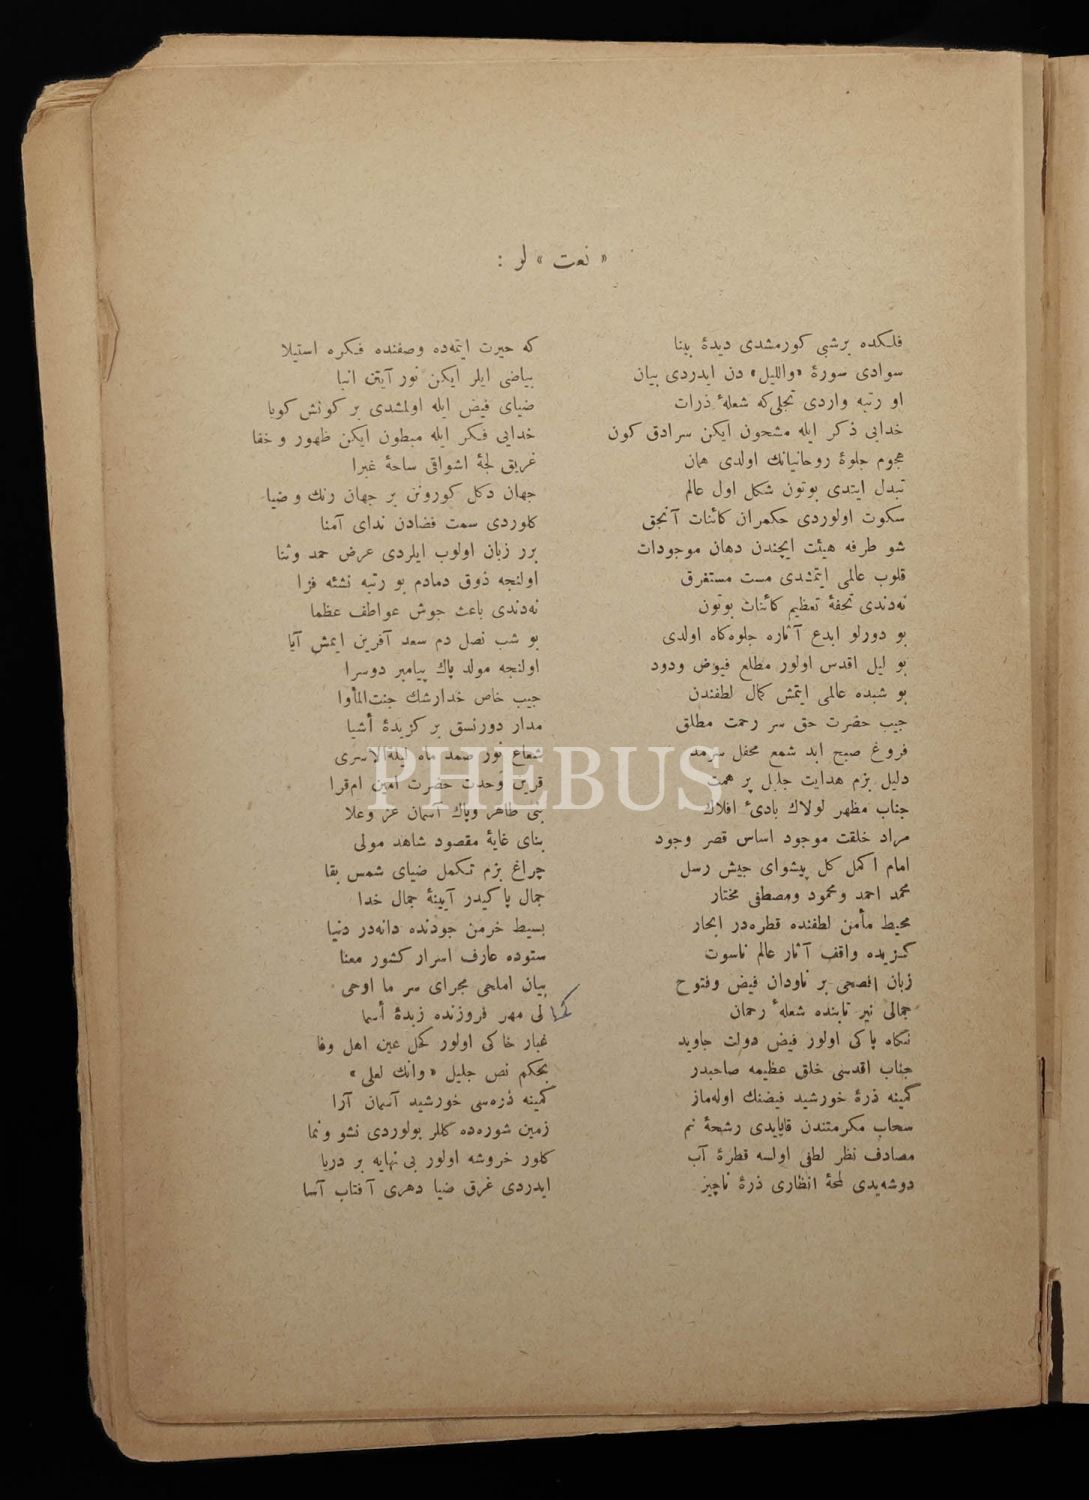 « نعت » لر :
فلكده برشبی كورمشدی دیدۀ بینا
كه حیرت ایتمه‌ده وصفنده فكره استیلا
سوادی سورۀ «واللیل» دن ایدردی بیان
بیاضی ایلر ایكن نور آیتن انبا
او رتبه واردی تجلی كه شعلۀ ذرات
ضیای فیض ایله اولمشدی بر كونش كویا
خدایی ذكر ایله مشحون ایكن سرادق كون
خدایی فكر ایله مبطون ایكن ظهور و خفا
هجوم جلوۀ روحانیانك اولدی همان
غریق لجۀ اشواقی ساحۀ غبرا
تبدل ایتدی بوتون شكل اول عالم
جهان دكل كورونن بر جهان رنك و ضیا
سكوت اولوردی حكمران كائنات آنجق
كلوردی سمت فضادن ندای آمنا
شو طرفه هیئت ایچندن دهان موجودات
برر زبان اولوب ایلردی عرض حمد وثنا
قلوب عالمی ایتمشدی مست مستغرق
اولنجه ذوق دمادم بو رتبه نشئه فزا
نه‌دندی تحفۀ تعظیم كائنات بوتون
نه‌دندی باعث جوش عواطف عظما
بو دورلو ابدع آثاره جلوه‌كاه اولدی
بو شب نصل دم سعد آفرین ایمش آیا
بو لیل اقدس اولور مطلع فیوض ودود
اولنجه مولد پاك پیامبر دوسرا
بو شبده عالمی ایتمش كمال لطفندن
حبیب خاص خدارشك جنت‌المأوا
حبیب حضرت حق سر رحمت مطلق
مدار دورنسق بر كزیدۀ أشیا
فروغ صبح ابد شمع محفل سرمد
شعاع نور صمد ماه لیلة‌الاسری
دلیل بزم هدایت جلیل پر همت
قرین وحدت حضرت امین ام‌قرا
جناب مظهر لولاك بادیٔ افلاك
نبی طاهر وپاك آسمان عز وعلا
مراد خلقت موجود اساس قصر وجود
بنای غایۀ مقصود شاهد مولی
امام اكمل كل پیشوای جیش رسل
چراغ بزم تكمل ضیای شمس بقا
محمد احمد ومحمود ومصطفی مختار
جمال پاكیدر آیینۀ جمال خدا
محیط مأمن لطفنده قطره‌در ابحار
بسیط خرمن جودنده دانه‌در دنیا
كزیده واقف آثار عالم ناسوت
ستوده عارف اسرار كشور معنا
زبان افصحی بر ناودان فیض وفتوح
بیان املحی مجرای سر ما اوحی
جمالی نیر تابنده شعلۀ رحمان
لی مهر فروزنده زبدۀ أسما
نكاه پاكی اولور فیض دولت جاوید
غبار خاكی اولور كحل عین اهل وفا
جناب اقدسی خلق عظیمه صاحبدر
بحكم نص جلیل «وانك لعلی»
كمینه ذرۀ خورشید فیضنك اوله‌ماز
كمینه ذره‌سی خورشید آسمان آرا
سحاب مكرمتندن قاپایدی رشحۀ نم
زمین شوره‌ده كللر بولوردی نشو ونما
مصادف نظر لطفی اولسه قطرۀ آب
كلور خروشه اولور بی نهایه بر دریا
دوشه‌یدی لمحۀ انظاری ذرۀ ناچیز
ایدردی غرق ضیا دهری آفتاب آسا
PHEBUS